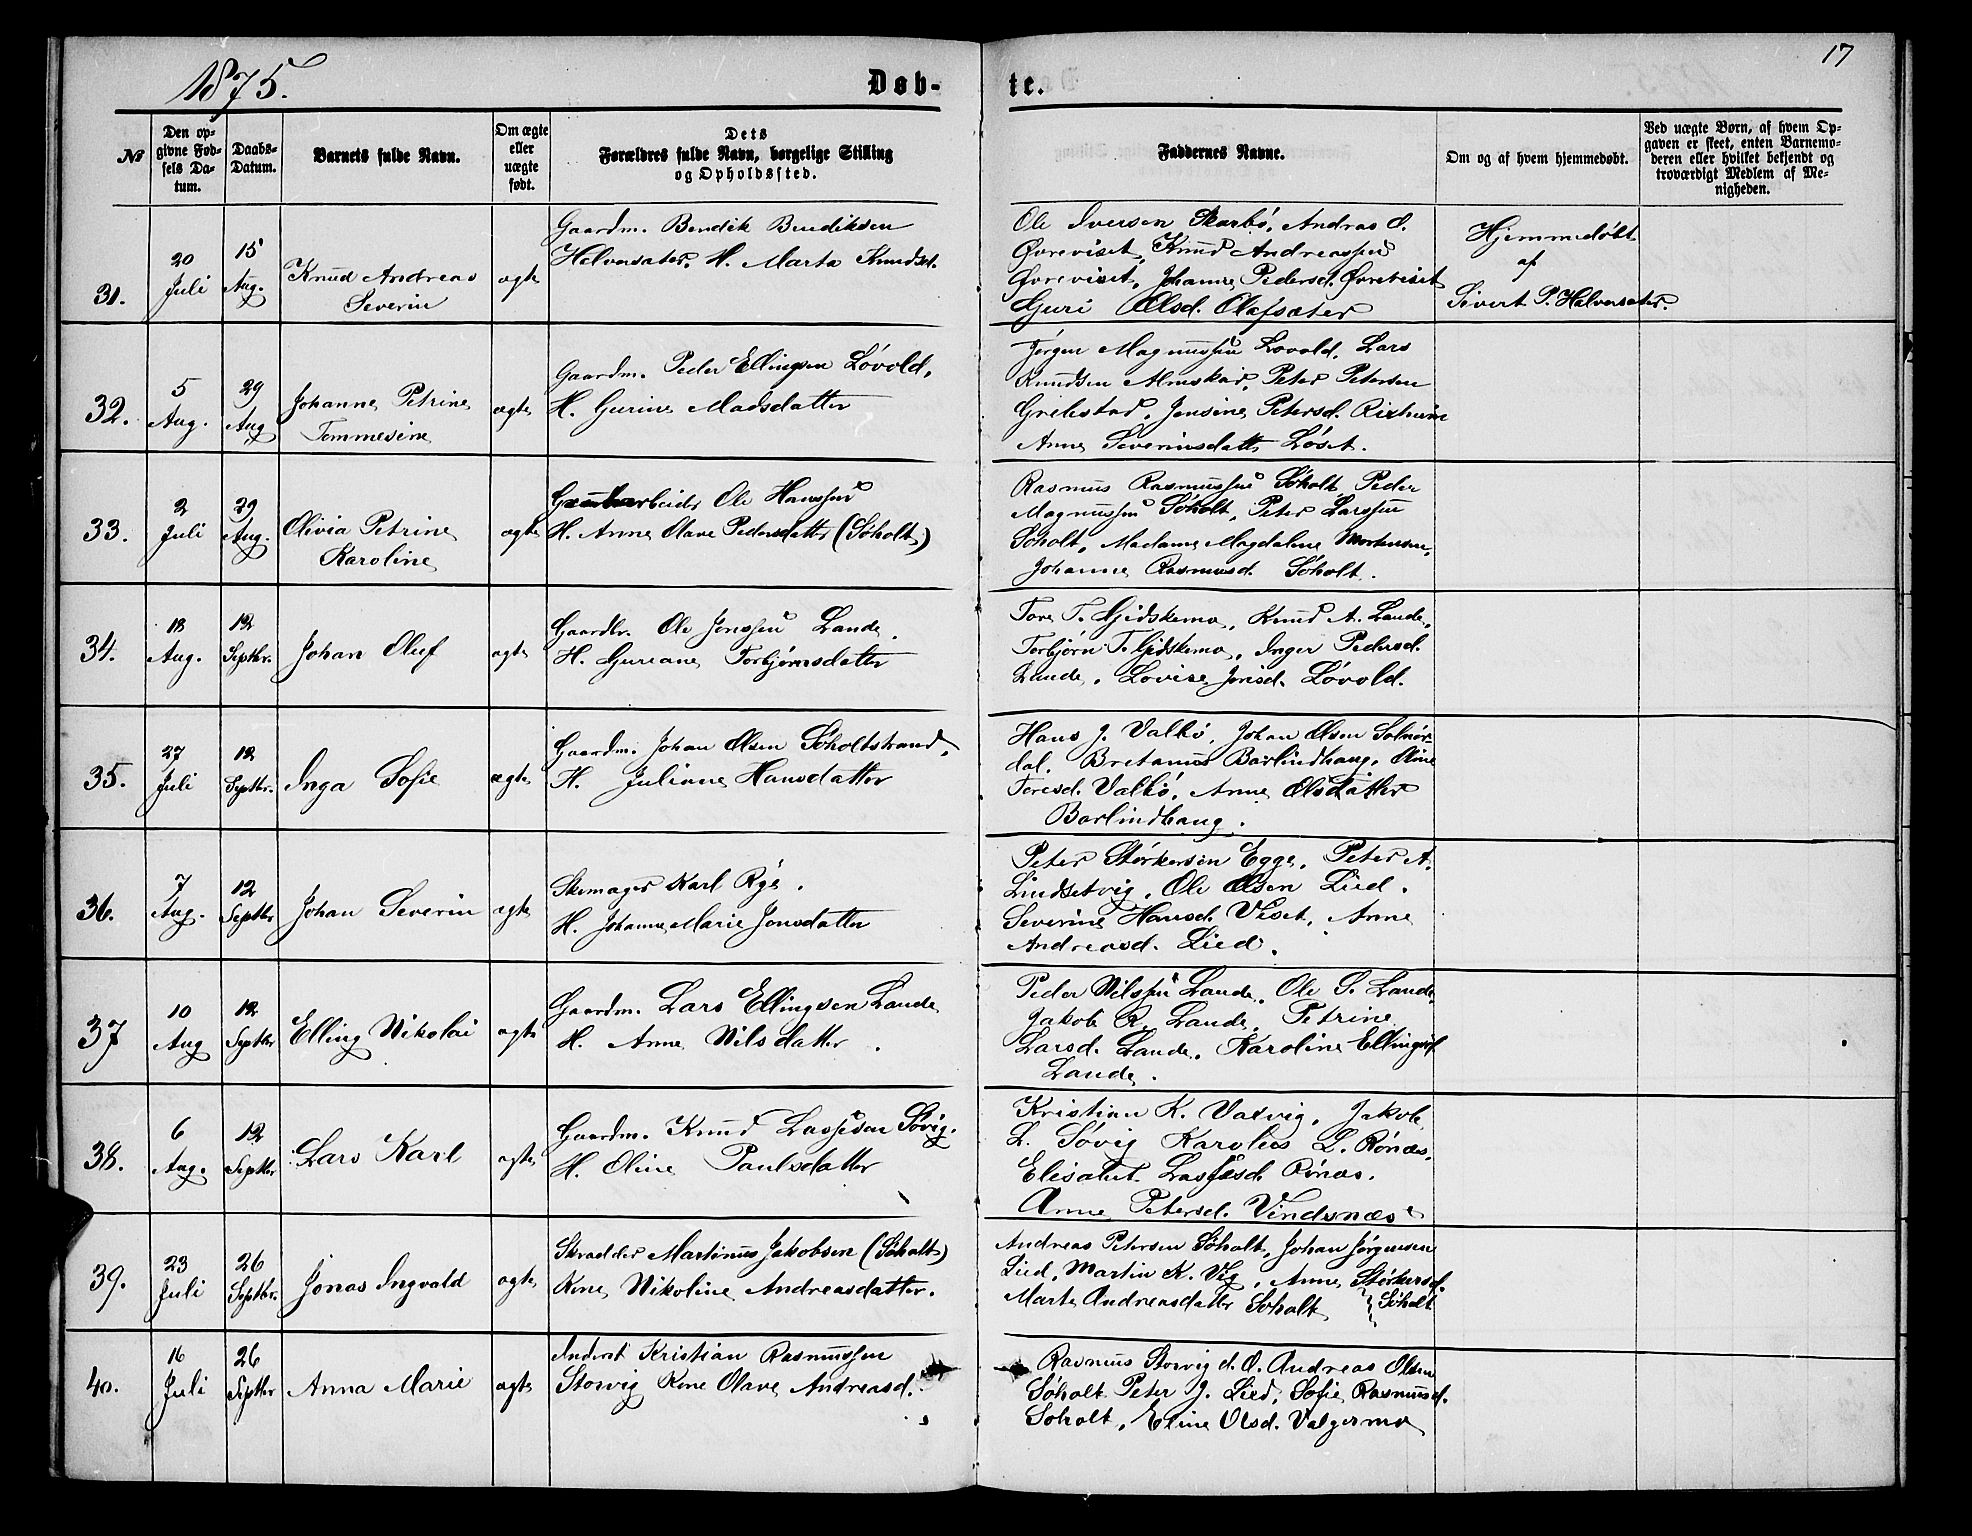 1875.
Døb-
te.
17
№
Den op-
givne Fød-
sels Da-
tum.
Daabs-
Datum.
Barnets fulde Navn.
Om ægte
eller
uægte
født.
Dets
Forældres fulde Navn, borgelige Stilling
og Opholdssted.
Faddernes Navne.
Om og af hvem hjemmedøbt.
Ved uægte Børn, af hvem Op-
gaven er skeet, enten Barnemo-
deren eller hvilket bekjendt og
troværdigt Medlem af Me-
nigheden.
31.
20
Juli
15
Aug.
Knud Andreas
Severin
ægte
Gaardm. Bendik Bendiksen
Helversater. H. Marta Knudsd.
Ole Iversen Skarbø, Andras O.
Øvreviset, Knud Andreassen
Øvreviset, Johanne Pedersd. Øvreviset
Guri Olsd. Olafsæter
Hjemmedøbt
af
Sivert P. Halversæter.
32.
5
Aug.
29
Aug
Johanne Petrine
Tommesine
ægte
Gaardm. Peder Ellingsen Løvold,
H. Gurine Madsdatter
Jørgen Magnussen Lovold, Lars
Knudsen Almskar, Peter Petersen
Grebstad, Jensine Petersd.
Anne Severinsdatt. Løset.
33.
2
Juli
29
Aug.
Olivia Petrine
Karoline
ægte
Ole Hanssen
H. Anne Olave Pedersdatter (Søholt)
Rasmus Rasmussen Søholt Peder
Magnussen Søholt, Peter Larssen
Søholt, Madame Magdalene Mortensen,
Johanne Rasmusd. Søholt.
34.
18
Aug.
12
Septbr.
Johan Oluf
ægte
Gaardbr. Ole Jonssen Lande.
H. Guriane Torbjørnsdatter
Tore T. Gjidskemo, Knud A. Lande,
Torbjørn T. Gjidskemo, Inger Pedersd.
Lande, Lovise Jonsd. Løvold.
35.
27
Juli
12
Septbr.
Inga Sofie
ægte
Gaardm. Johan Olsen Søholtstrand,
H. Juliane Hansdatter
Hans J. Valbø, Johan Olsen Solnør-
dal. Bretanus Barlindhaug, Oline
Toresd. Valbø, Anne Olsdatter
Barlindhaug.
36.
7
Aug.
12
Septbr
Johan Severin
ægte
Skomager Karl Ryg.
H. Johanne Marie Jonsdatter
Peter Størkersen Egge, Peter A.
Lindsetvig, Ole Olsen Lied.
Severine Hansd. Viset, Anne
Andreasd. Lied.
37
10
Aug
12
Septbr
Elling Nikolai
ægte
Gaardm. Lars Ellingsen Lande
H. Anne Nilsdatter.
Peder Nilssen Lande, Ole S. Lande,
Jakob R. Lande, Petrine
Larsd. Lande, Karoline Ellingsd.
Lande.
38.
6
Aug.
12
Septbr
Lars Karl
ægte
Gaardm. Knud Lassesen Søvig.
H. Oline Paulsdatter
Kristian K. Vaxvig, Jakob
L. Søvig Karolus L. Rønæs,
Elisabet. Lassesd. Rønæs.
Anne Petersd. Vindsnæs
39.
23
Juli
26
Septbr.
Jonas Ingvald
ægte
Skrædder Martinus Jakobsen (Søholt)
Kone Nikoline Andreasdatter.
Andreas Petersen Søholt, Johan Jørgensen
Lied, Martin K. Vig, Anne Størkersd.
Marte Andreasdatter Søholt } Søholt
40.
16
Juli
26
Septbr
Anna Marie
ægte
Inderst Kristian Rasmussen
Storvig Kone Olave Andreasd.
Rasmus Storvig d. Æ. Andreas Olsen
Søholt Peter J. Lied, Sofie Rasmusd.
Søholt, Eline Olsd. Valgermo